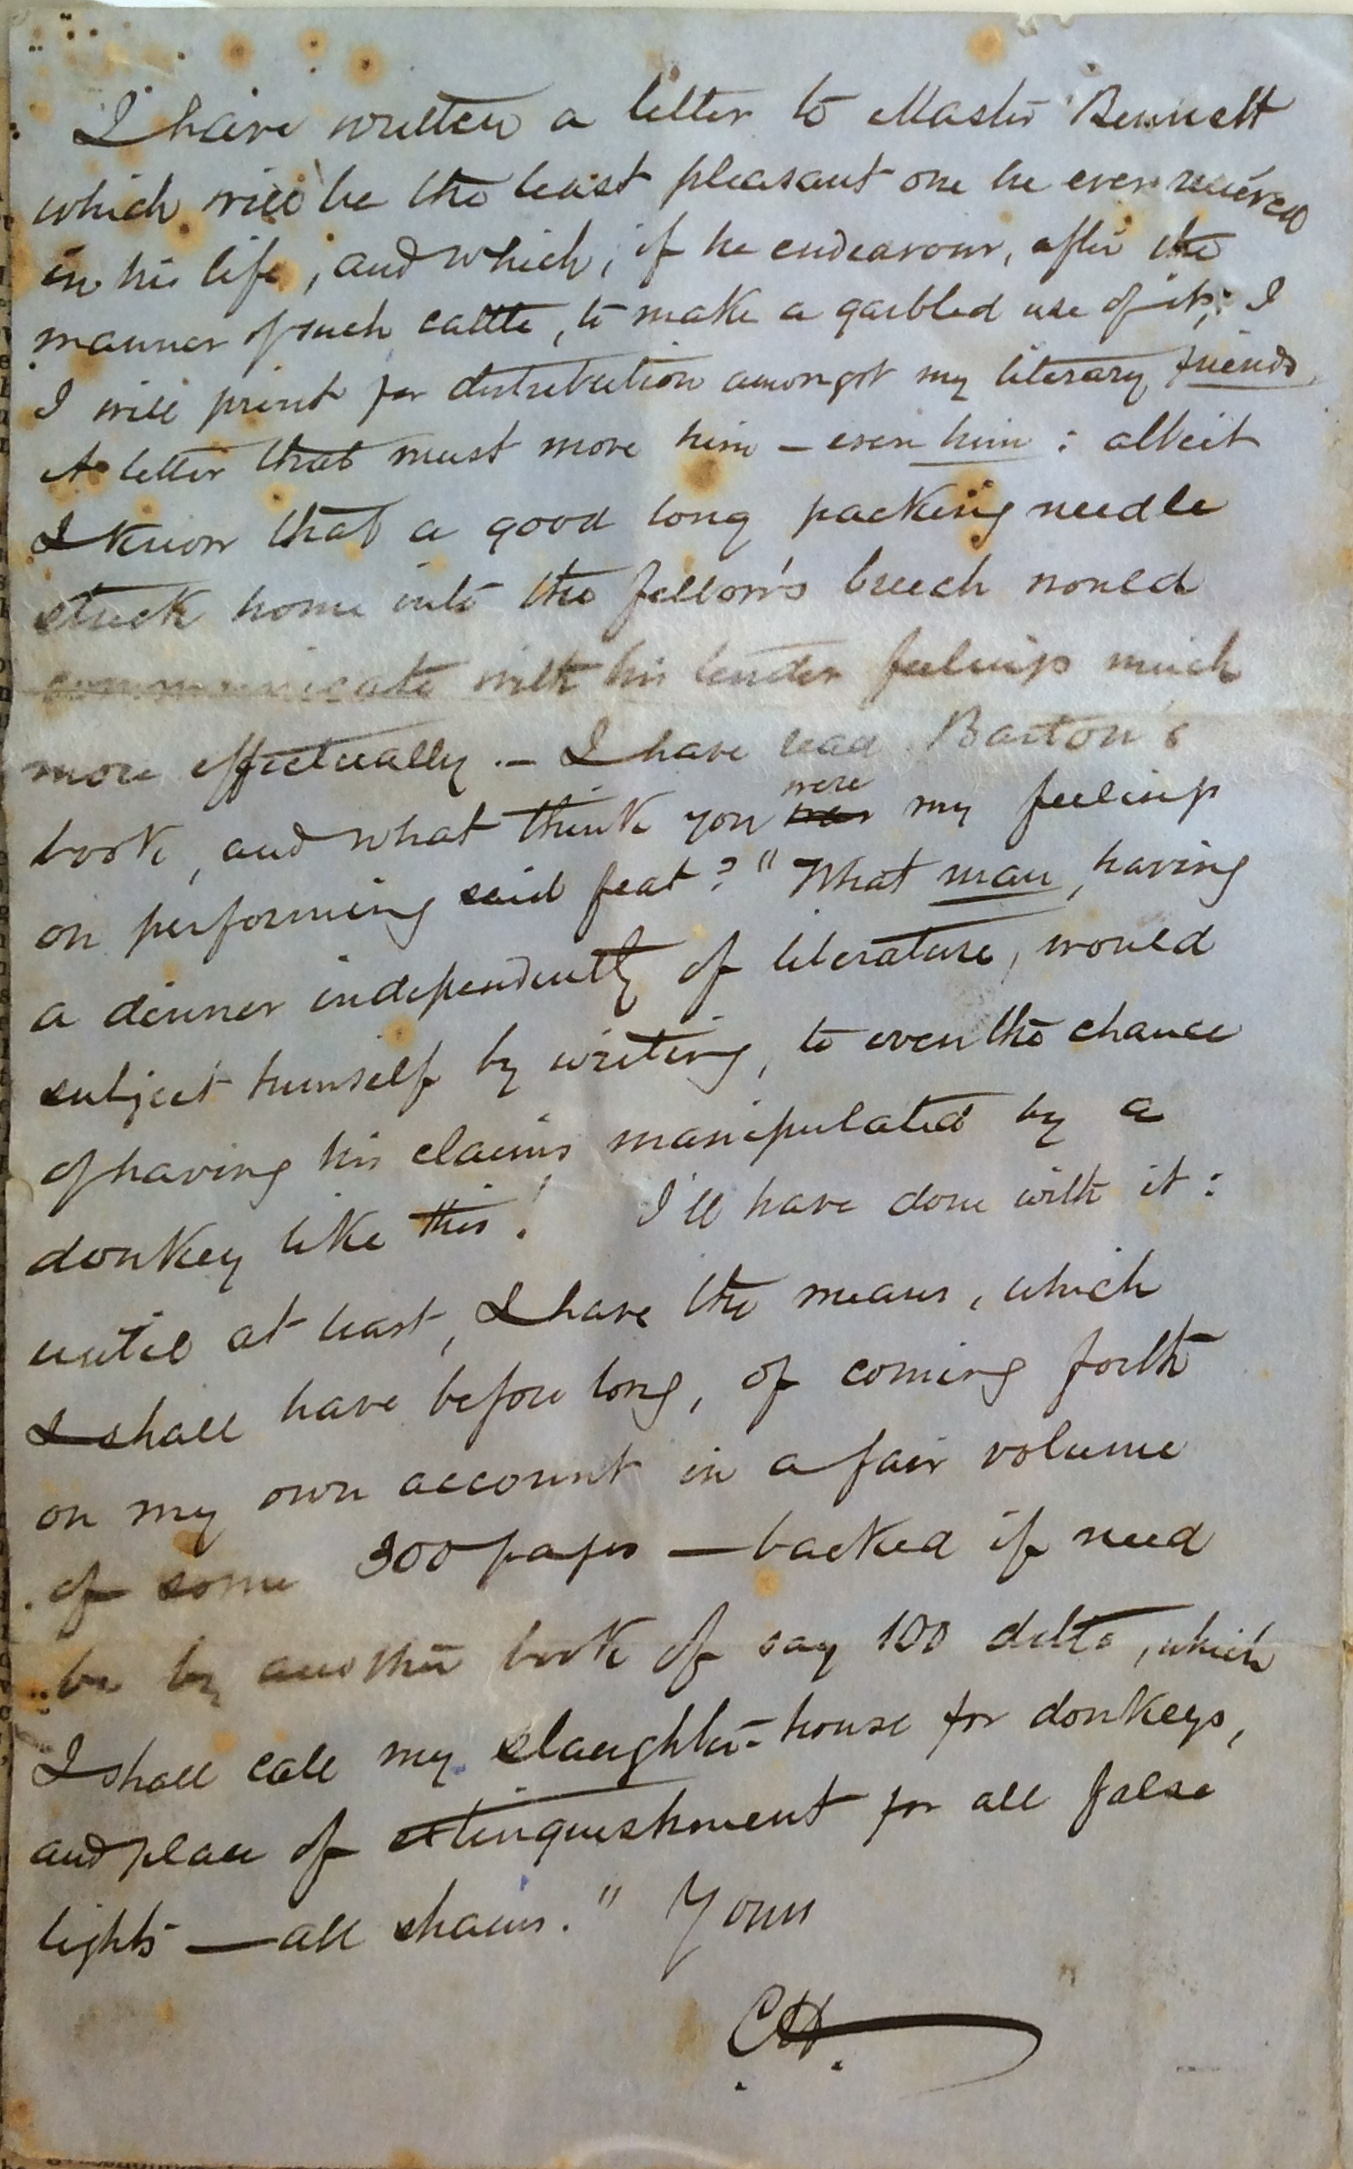 I have written a letter to Master Bennett
which will be the least pleasant one he ever received
in his life, and which, if he endeavour, after the
manner of such cattle, to make a garbled use of it, I
I will print for distribution amongst my literary friends.
A letter that must move him – even him : albeit
I know that a good long packing needle
stuck home into the fellow's breech would
communicate with his tender feelings much
more effectually. – I have read Barton's
book, and what think you were my feelings
on performing said feat? " What man, having
a dinner independently of literature, would
subject himself by writing, to even the chance
of having his claims manipulated by a
donkey like this! I'll have done with it :
until at least, I have the means, which
I shall have before long, of coming forth
on my own account in a fair volume
of some 300 pages — backed if need
be by another book of say 100 ditto, which
I shall call my slaughter-house for donkeys,
and place of extinguishment for all false
lights — all shams." Yours
CH.